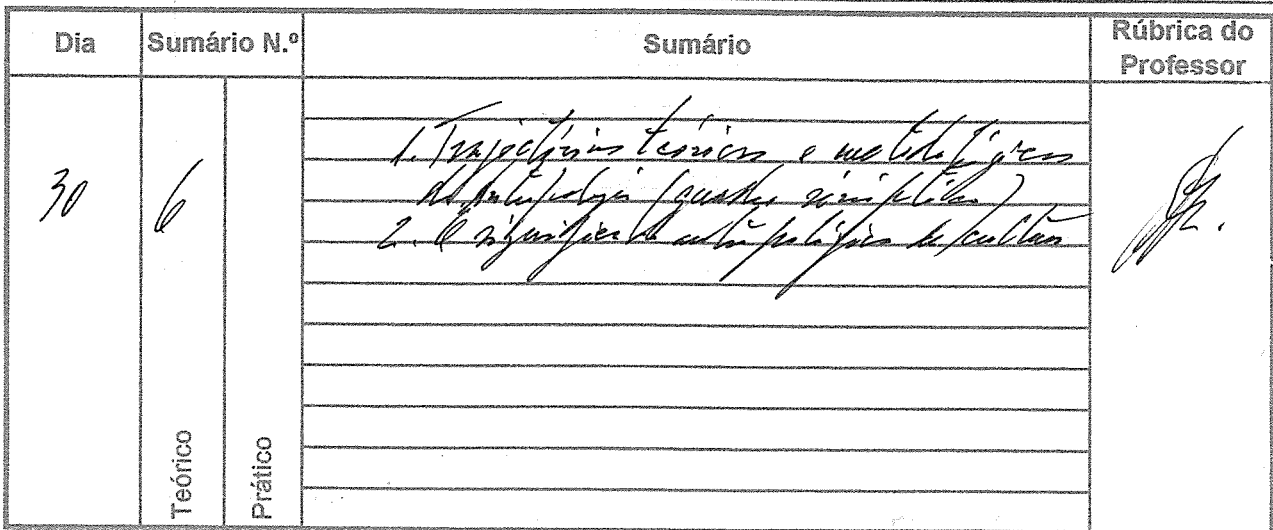 Dia Sumário N.º Sumário Rúbrica do Professor
30 6 1. Trajectórias teóricas e metodológicas
da antropologia (quadro sinóptico)
2. O significado antropológico de cultura
Teórico Prático